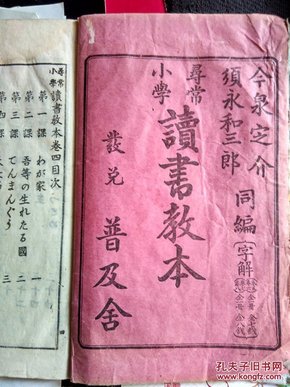 今泉定介
須永和三郎
同編
字解
尋常
小學
讀書教本
發兌
普及舍
尋常
小學
讀書教本卷四目次
第一課
わが家
一
第二課
吾等の生れたる國
二
第三課
てんまんぐう
三
第四課
孔夫子旧书网